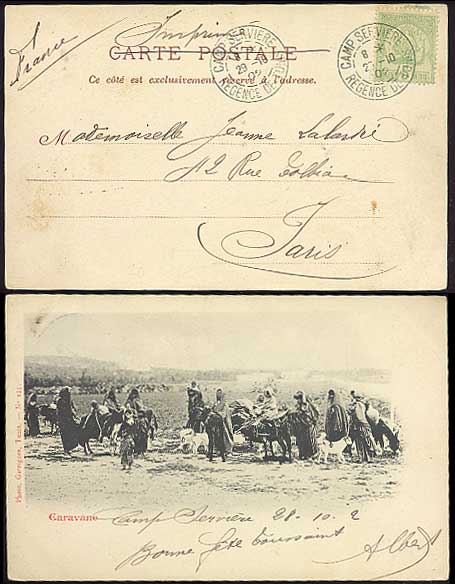 France
Imprimé
CARTE POSTALE
Ce côté est exclusivement réservé à l'adresse.
CAMP SERVIERE
8
29 -10
RÉGENCE DE
CAMP SERVIERE
8
-10
RÉGENCE DE
5
Mademoiselle Jeanne
12 Rue Tolbiac
Paris
Photo. Garrigues, Tunis. — Nº
Caravane
Camp Servière 28-10-2
Bonne fête toussaint Albert